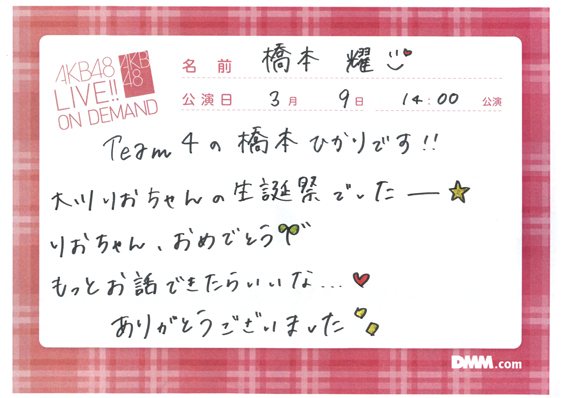 AKB48
LIVE!!
ON DEMAND
AKB
48
名前 橋本 耀
公演日 3月 9日 14:00 公演
Team 4の橋本ひかりです!!
大川りおちゃんの生誕祭でしたー
りおちゃん、おめでとう
もっとお話できたらいいな...
ありがとうございました
DMM.com